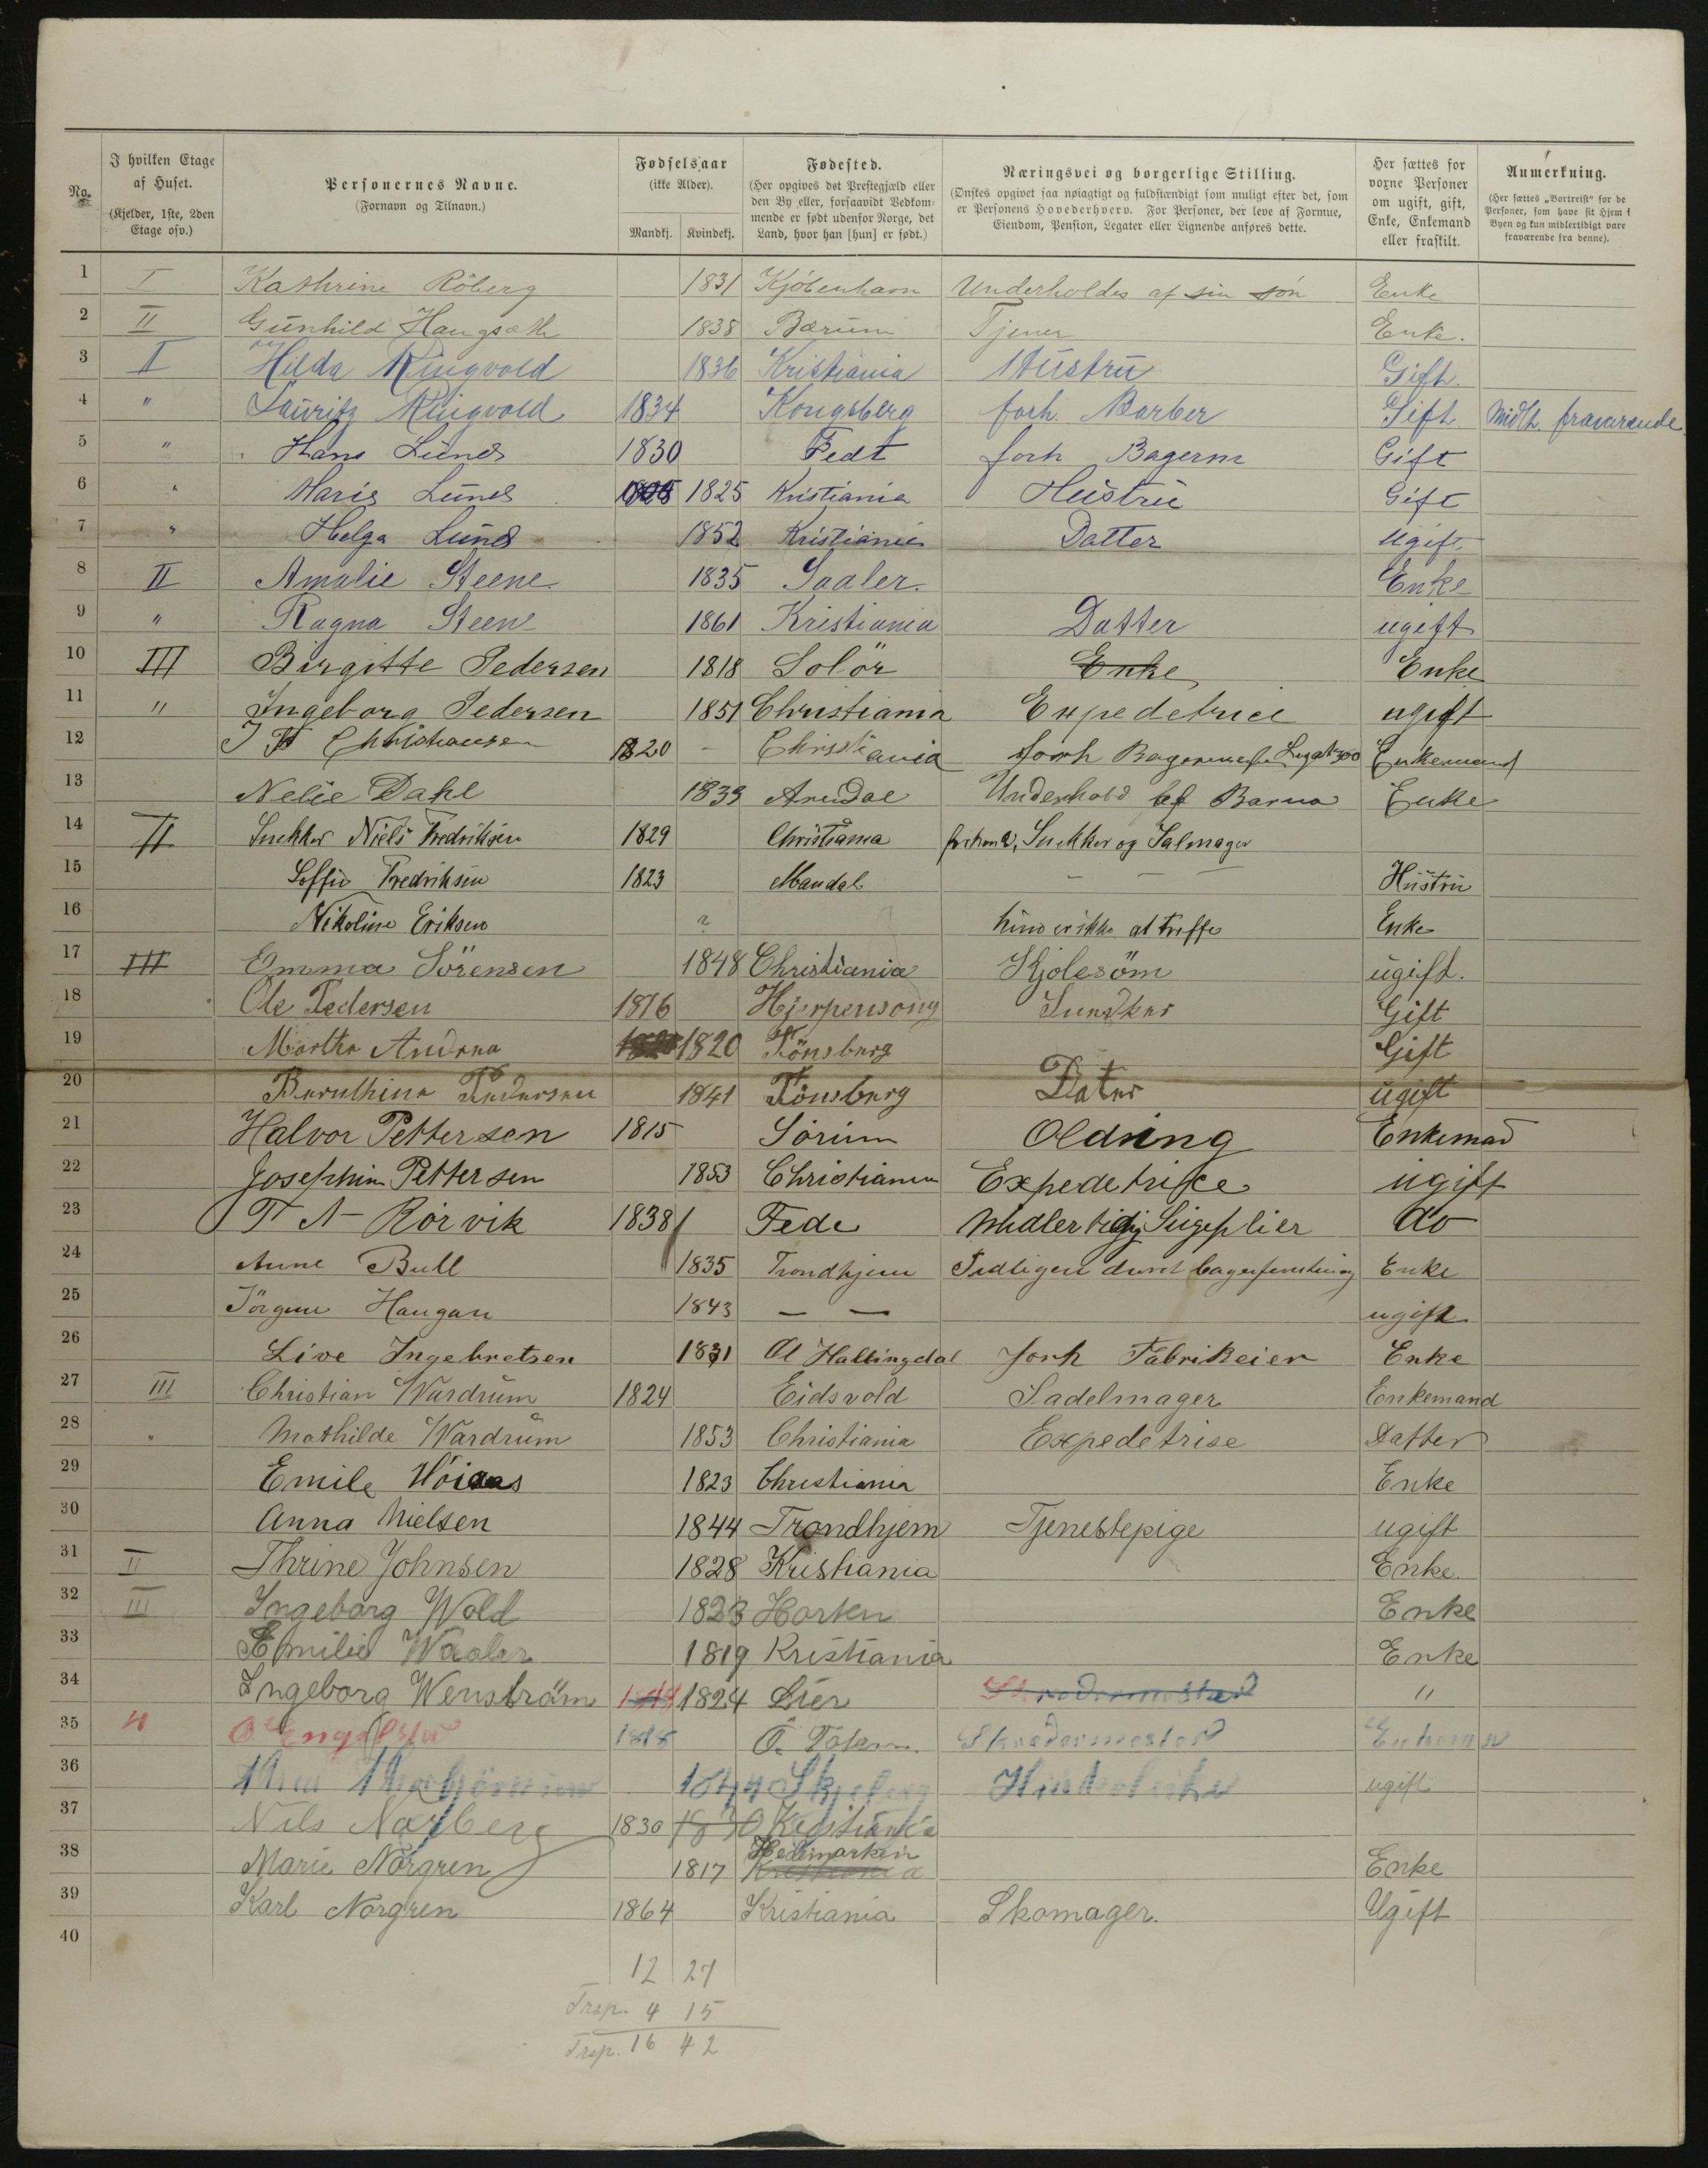 No.
I hvilken Etage af Huset.
(Kjelder, 1ste, 2den Etage osv.)
Personernes Navne.
(Fornavn og Tilnavn.)
Fødselsaar
(ikke Alder).
Mandkj. Kvindekj.
Fødested.
(Her opgives det Prestegjæld eller den By eller, forsaavidt Vedkommende er født udenfor Norge, det Land, hvor han [hun] er født.)
Næringsvei og borgerlige Stilling.
(Ønskes opgivet saa nøiagtigt og fuldstændigt som muligt efter det, som er Personens Hovederhverv. For Personer, der leve af Formue, Eiendom, Pension, Legater eller Lignende anføres dette.
Her sættes for voxne Personer om ugift, gift, Enke, Enkemand eller fraskilt.
Anmerkning.
(Her sættes „Bortreist“ for de Personer, som have sit Hjem i Byen og kun midlertidigt vare fraværende fra denne).
1 I Kathrine Röberg 1831 Kjöbenhavn Underholdes af sin sön Enke
2 II Gunhild Haugsæth 1838 Bærum Tjener Enke.
3 I Hilda Ringvold 1836 Kristiania Hustru Gift.
4 " Lauritz Ringvold 1834 Kongsberg forh. Barber Gift Midlt. fraværende
5 " Hans Lund 1830 Fedt forh Bagerm Gift
6 " Maria Lund 1825 Kristiania Hustru Gift
7 " Helga Lund 1852 Kristiania Datter Ugift
8 II Amalie Steene 1835 Saaler. Enke
9 " Ragna Steene 1861 Kristiania Datter ugift
10 III Birgitte Pedersen 1818 Solör Enke Enke
11 " Ingeborg Pedersen 1851 Christiania Expedetrice ugift
12 J F Christiansen 1820 - Christiania forh Bagermester Legat 300 Enkemand
13 Nelie Dahl 1839 Arendal Underhold af Barna Enke
14 II Snekker Niels Fredriksen 1829 Christiania forhenv. Snekker og Salmager
15 Soffie Fredriksen 1823 Mandal - - - Hustru
16 Nikoline Eriksen ? hun er ikke at treffe Enke
17 III Emma Sörensen 1848 Christiania Kjolesöm ugift.
18 Ole Pedersen 1816 Snedker Gift
19 Marthe Andrea 1820 Tönsberg Gift
20 Pedersen 1841 Tönsberg Dater ugift
21 Halvor Pettersen 1815 Sörum Oldning Enkemad
22 Josephine Pettersen 1853 Christiania Expedetrice ugift
23 T A Rörvik 1838 Fede Midlertidig Sygeplier do
24 Anne Bull 1835 Trondhjem Tidligen drevet bagerforretning Enke
25 Jörgine Haugan 1843 — — ugift
26 Live Ingebretsen 1831 Al Hallingdal forh Fabrikeier Enke
27 III Christian Wardrum 1824 Eidsvold Sadelmager Enkemand
28 " Mathilde Wardrum 1853 Christiania Expedetrise Datter
29 Emile 1823 Christiania Enke
30 Anna Nielsen 1844 Trondhjem Tjenestepige ugift
31 II Thrine Johnsen 1828 Kristiania Enke.
32 III Ingeborg Wold 1823 Horten Enke
33 Emilie Waaler 1819 Kristiania Enke
34 Ingeborg Wenström 1824 Lier Skrædermester "
35 4 O Engelstad 1818 Ö. Toten. Skrædermester Enkeman
36 1844 Skjeberg ugift
37 Nils Norberg 1830 1830 Kristiania
38 Marie Norgren 1817 Hedemarken Kristiania Enke
39 Karl Norgren 1864 Kristiania Skomager. Ugift
40
12 27
Trsp. 4 15
Trsp. 16 42